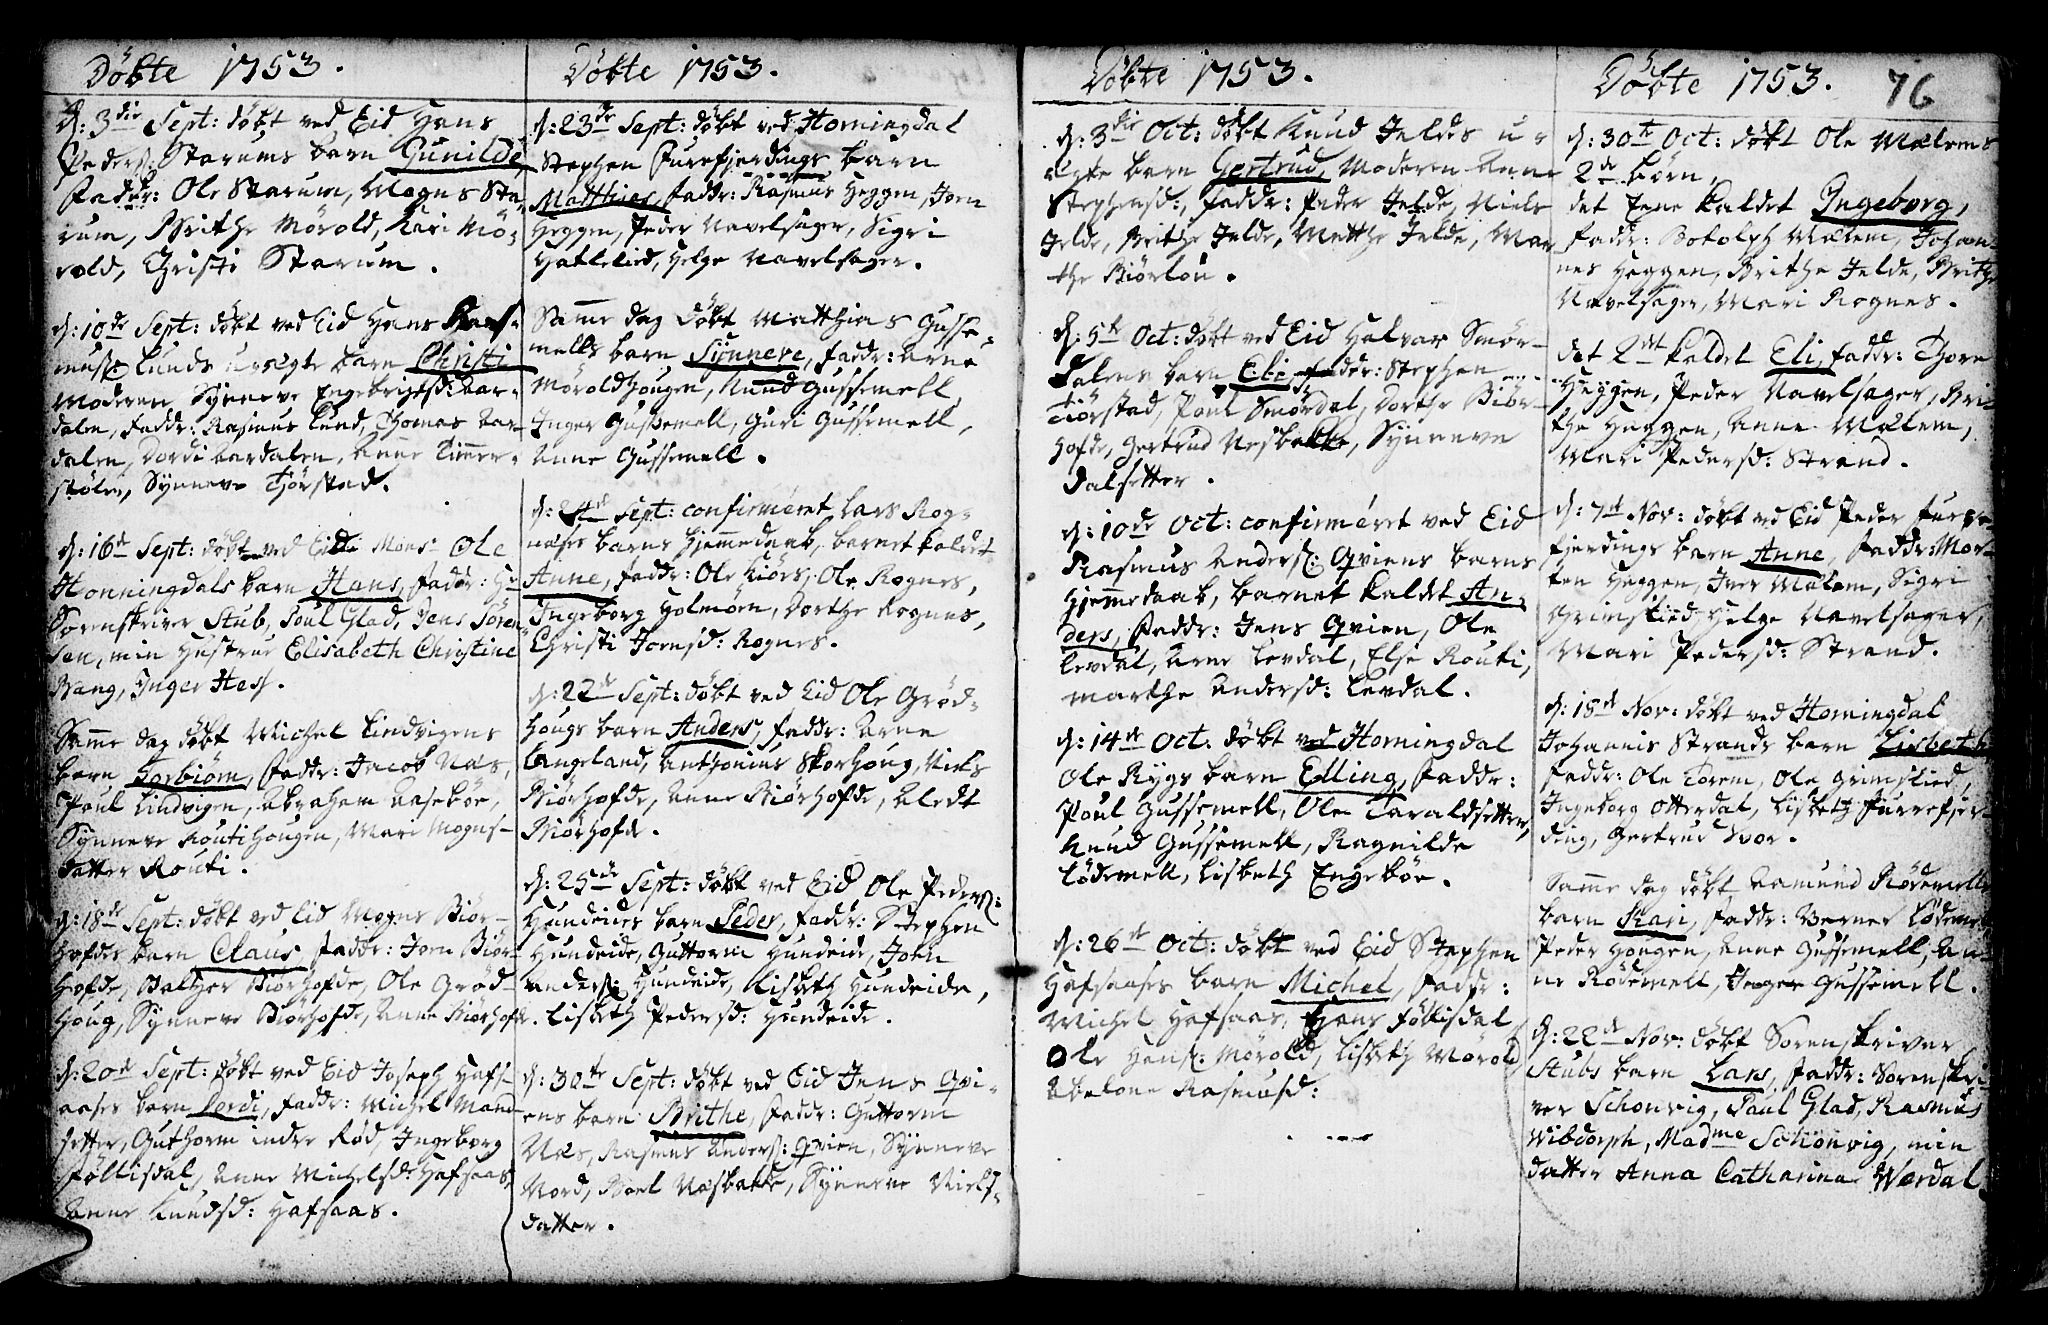 Döbte 1753.
d: 3die Sept: döbt ved Eid Hans
Peders: Starums barn Gunilde
Faddr: Ole Starum, Mogns Sta-
rum, Brithe Mörold, Kari Mö-
rold, Christi Starum.
d: 10de Sept: döbt ved Eid Hans Ras-
muss: Lunds uægte barn Christi
Moderen Synneve Engebrigtsd: Aar-
dalen, Faddr: Rasmus Lund, Thomas Aar-
dalen, Dordi Aardalen, Anne Timmer-
stølen, Synneve Tjörstad.
d: 16de Sept: döbt ved Eid Mons: Ole
Honningdals barn Hans, Faddr: Hr
Sorenskriver Stub, Poul Glad, Jens Sören-
sen, min Hustrue Elisabeth Christine
Bang, Inger Hess.
Samme dag döbt Michel Lindvigens
barn Torbiörn, Faddr: Jacob Næs,
Poul Lindvigen, Abraham Aasebøe,
Synneve Routihougen, Mari Mogns-
datter Routi.
d: 18de Sept: döbt ved Eid Mogns Biör-
hofdes barn Claus, Faddr: Joen Biör-
hofde, Balzer Biörhofde, Ole Gröd-
houg, Synneve Biörhofde, Anne Biörhofde.
d: 20de Sept: döbt ved Eid Joseph Hafs-
aases barn Dordi, Faddr: Michel Mand-
setter, Guthorm indre Rød, Ingeborg
Föllisdal, Anne Michelsd: Hafsaas,
Anne Knudsd: Hafsaas.
Döbte 1753.
d: 23de Sept: döbt ved Horningdal
Stephen Furefjerdings barn
Matthias, Faddr: Rasmus Heggen, Joen
Heggen, Peder Navelsager, Sigri
Hatlelied, Helge Navelsager.
Samme dag döbt Matthias Gusse-
mells barn Synneve, Faddr: Arne
Möroldhougen, Knud Gussemell,
Inger Gussemell, Guri Gussemell,
Anne Gussemell.
d: 24de Sept: confirmeret Lars Rog-
næses barns Hjemmedaab, barnet kaldet
Anne, Faddr: Ole Kiörs, Ole Rognes,
Ingeborg Holmöen, Dorthe Rognes,
Christi Joensd: Rognes.
d: 22de Sept: döbt ved Eid Ole Gröd-
hougs barn Anders, Faddr: Arne
Langeland, Anthonius Skorhoug, Niels
Biörhofde, Anne Biörhofde, Aledt
Biörhofde.
d: 25de Sept: döbt ved Eid Ole Peders:
Hundeides barn Peder, Faddr: Stephen
Hundeide, Guttorm Hundeide, Joen
Anders: Hundeide, Lisbeth Hundeide,
Lisbeth Pedersd: Hundeide.
d: 30te Sept: döbt ved Eid Jens Qvi-
ens barn Brithe, Faddr: Guttorm
Næs, Rasmus Anders: Qvien, Synneve
Nord, Boel Næsbakke, Synneve Niels-
datter.
Döbte 1753.
d: 3die Oct: döbt Knud Jeldes u-
ægte barn Gertrud, Moderen Anne
Stephensd:, Faddr: Peder Jelde, Niels
Jelde, Brithe Jelde, Matthe Jelde, Mar-
the Biörlou.
d: 5te Oct: döbt ved Eid Halvar Smör-
dalens barn Eli Faddr: Stephen
Tiörstad, Poul Smördal, Dorthe Biör-
hofde, Gertrud Nesbakke, Synneve
Dalsetter.
d: 10de Oct: confirmeret ved Eid
Rasmus Anders: Qviens barns
Hjemmedaab, barnet kaldet An-
ders, Faddr: Jens Qvien, Ole
Levdal, Arne Levdal, Else Routi,
Marthe Andersd: Levdal.
d: 14de Oct: döbt ved Horningdal
Ole Rygs barn Elling, Faddr:
Poul Gussemell, Ole Taraldsetter,
Knud Gussemell, Ragnilde
Lödemell, Lisbeth Engebøe.
d: 26de Oct: döbt ved Eid Stephen
Hafsaases barn Michel, Faddr:
Michel Hafsaas, Hans Föllisdal
Ole Hans: Mörold, Lisbeth Mörold,
Abelone Rasmusd:
Döbte 1753. 76
d: 30te Oct: döbt Ole Mælems
2de börn,
det Eene kaldet Ingeborg,
Faddr: Botolph Mælem, Johan-
nes Heggen, Brithe Jelde, Brithe
Navelsager, Mari Rognes.
det 2det kaldet Eli, Faddr: Thore
Heggen, Peder Navelsager, Bri-
the Heggen, Anne Mælem,
Mari Pedersd: Strand.
d: 7de Nov: döbt ved Eid Peder Furre-
fjerdings barn Anne, Faddr: Mor-
ten Heggen, Iver Mælem, Sigri
Grimslied, Helge Navelsager,
Mari Pedersd: Strand.
d: 18de Nov: döbt ved Horningdal
Johannis Strands barn Lisbeth
Faddr: Ole Torem, Ole Grimslied,
Ingeborg Otterdal, Lisbeth Furrefjer-
ding, Gertrud Hvor.
Samme dag döbt Aamund Rödemells
barn Kari, Faddr: Verner Lödemel
Peder Hougen, Anne Gussemell, An-
ne Rödemell, Inger Gussemell.
d: 22de Nov: döbt Sorenskriver
Stubs barn Lars, Faddr: Sorenskri-
ver Schonvig, Paul Glad, Rasmus
Wibdorph, Madme Schönvig, min
datter Anna Catharina Werdal.